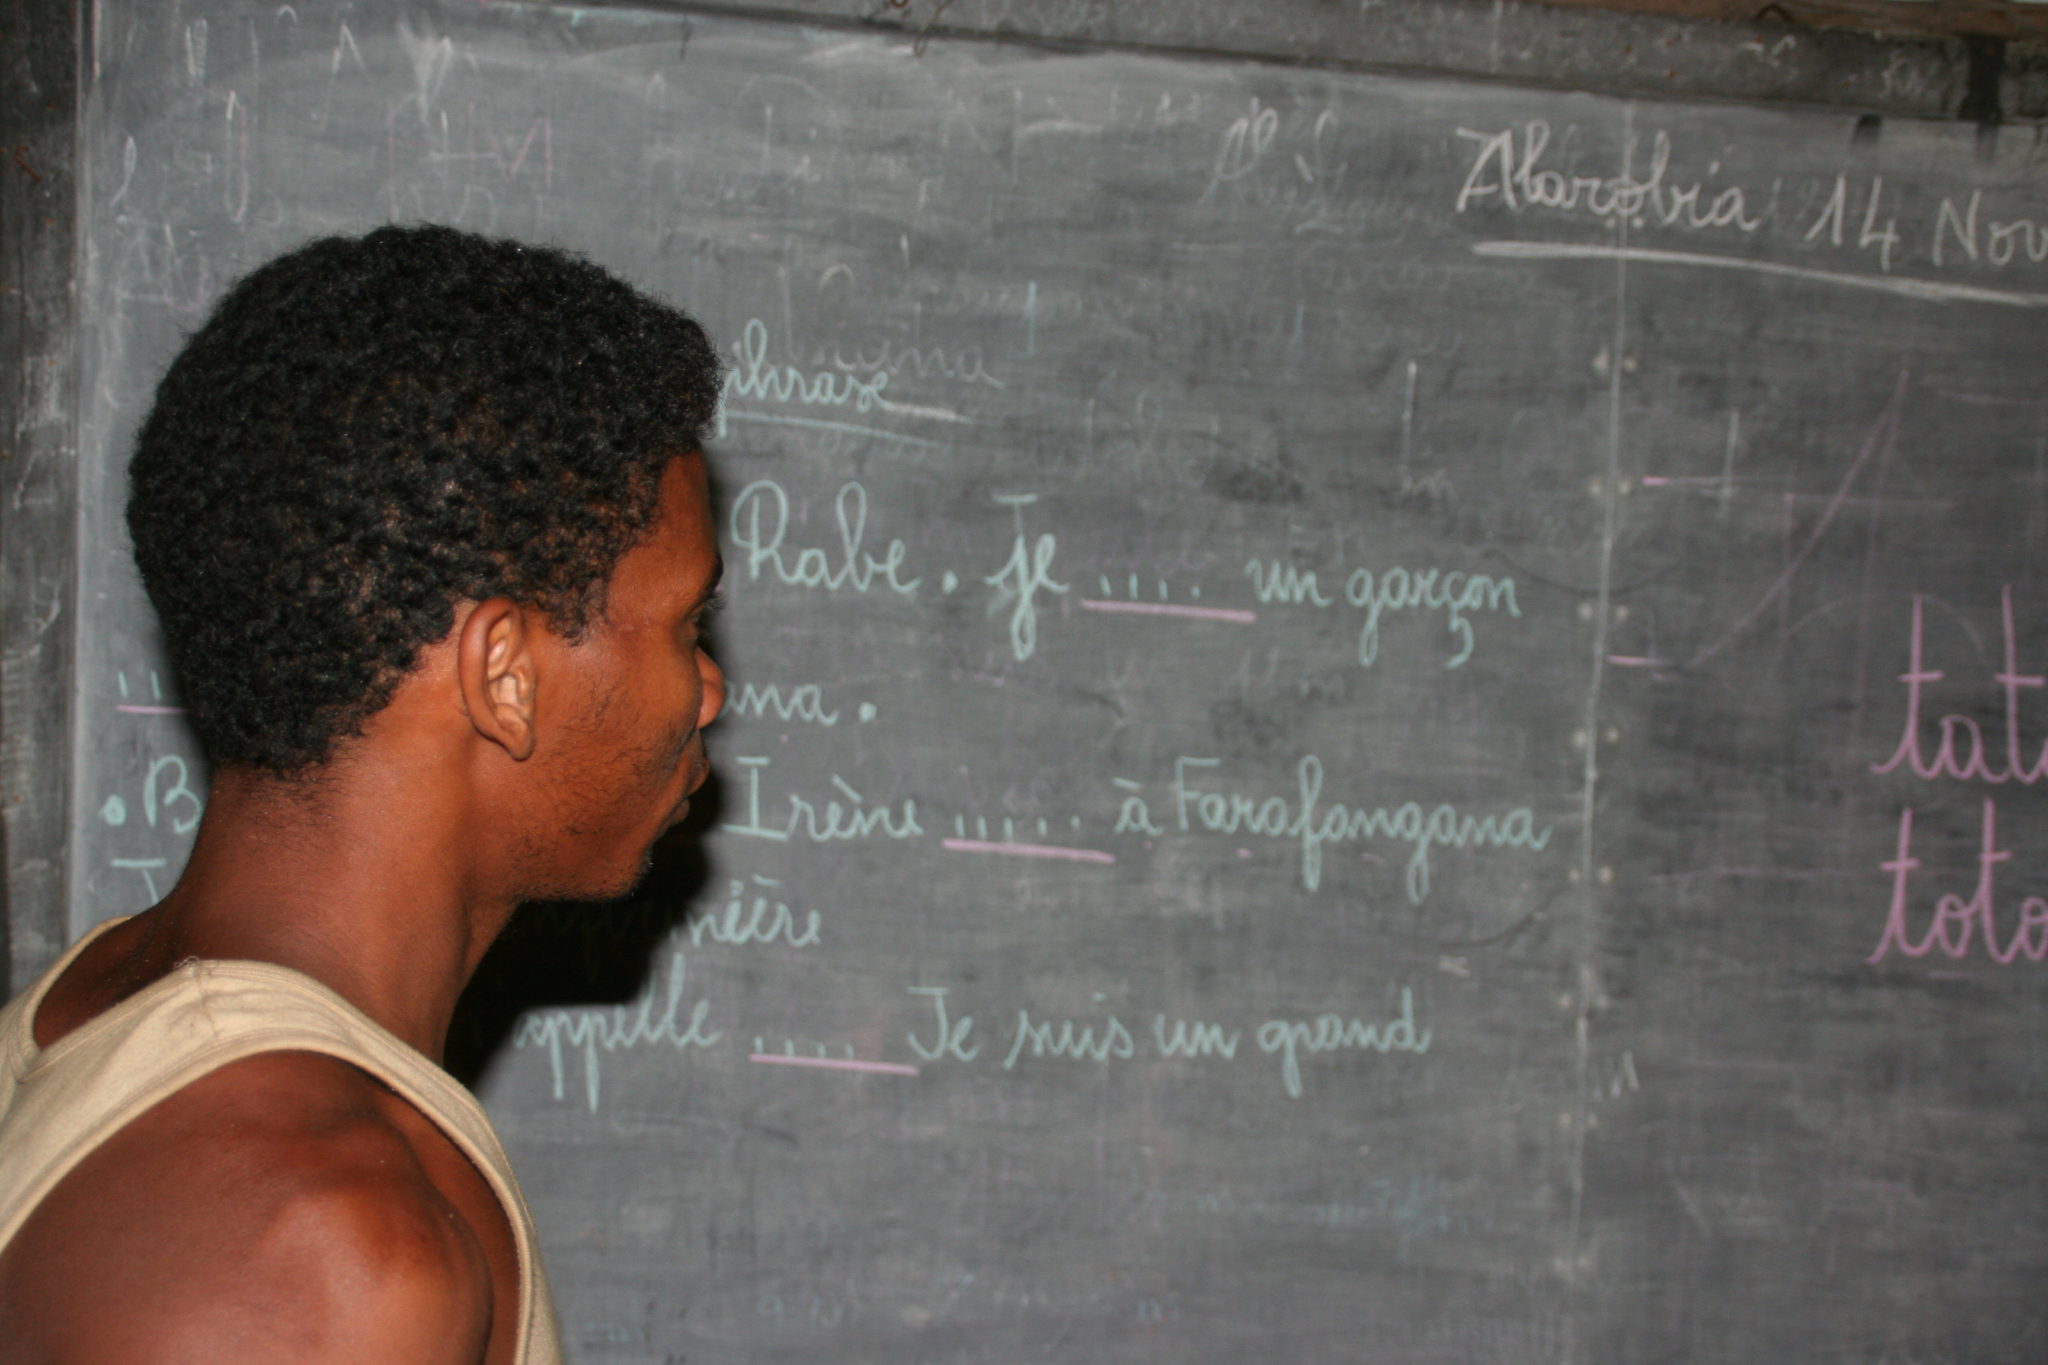 Alarobia 14 Nov
phrase
Rabe. Je .... un garçon
ana.
.B Irène ..... à Farafangana
appelle .... Je suis un grand
tata
toto